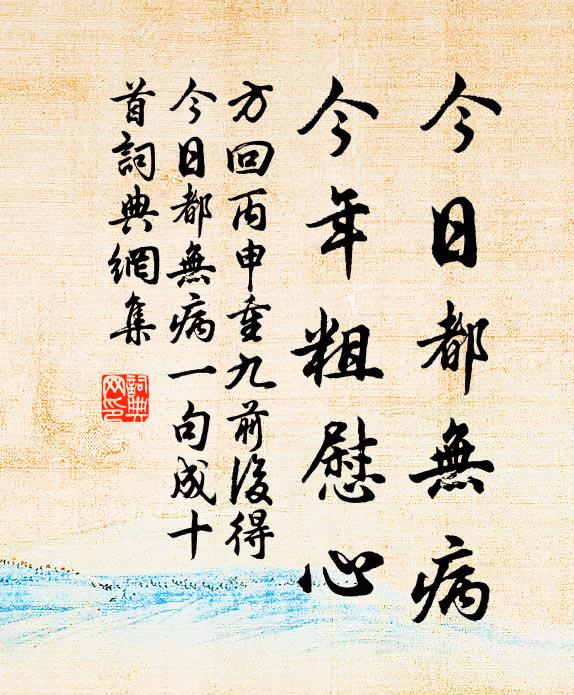 今日都無病
今年粗慰心
方回丙申重九前後得
今日都無病一句成十
首詞典網集
詞典
网印